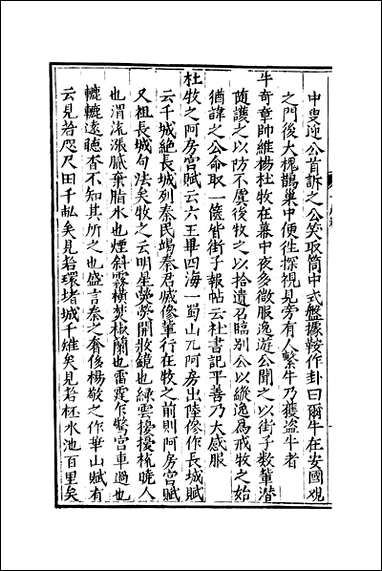 中叟迎公首訴之公笑取筒中式盤據鞍作卦曰爾牛在安國觀
之門後大槐鵲巢中便往探視見旁有人繫牛乃獲盜牛者
牛奇章帥維楊杜牧在幕中夜多微服逸遊公聞之以街子數輩潛
隨護之以防不虞後牧之以拾遺召臨別公以縱逸為戒牧之始
猶諱之公命取一篋皆街子報帖云杜書記平善乃大感服
杜牧之阿房宮賦云六王畢四海一蜀山兀阿房出陸傪作長城賦
云千城絕長城列秦民竭秦君滅傪輩行在牧之前則阿房宮賦
又祖長城句法矣牧之云明星熒熒開妝鏡也綠雲擾擾梳曉人
也渭流漲膩棄脂水也煙斜霧橫焚椒蘭也雷霆乍驚宮車過也
轆轆遠聽杳不知其所之也盛言秦之奢侈楊敬之作華山賦有
云見若咫尺田千畝矣見若環堵城千雉矣見若杯水池百里矣